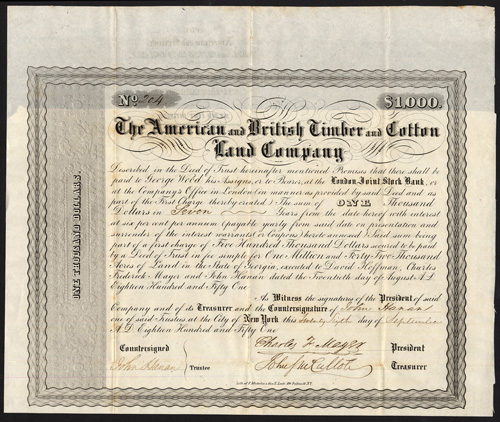 No. 204 $1,000.
The American and British Timber and Cotton
Land Company
Described in the Deed of Trust hereinafter mentioned Promises that there shall be
paid to George Wood his Assigns, or to Bearer, at the London Joint Stock Bank, or
at the Company's Office in London (in manner as provided by said Deed and as
part of the First Charge thereby created) The sum of ONE Thousand
Dollars in Seven Years from the date hereof with interest
at six per cent per annum (payable yearly from said date on presentation and
surrender of the interest warrants or Coupons hereto annexed) Said sum being
part of a first charge of Five Hundred Thousand Dollars secured to be paid
by a Deed of Trust in fee simple for One Million and Forty Five Thousand
Acres of Land in the State of Georgia, executed to David Hoffman, Charles
Frederick Mayer and John Hanan dated the Twentieth day of August A.D.
Eighteen Hundred and Fifty One
As Witness the signatory of the President of said
Company and of its Treasurer and the Countersignature of John Hanan
one of said Trustees at the City of New York this twenty sixth day of September
A.D. Eighteen Hundred and Fifty One
Countersigned Charles F. Mayer President
John Hanan Trustee Treasurer
ONE THOUSAND DOLLARS